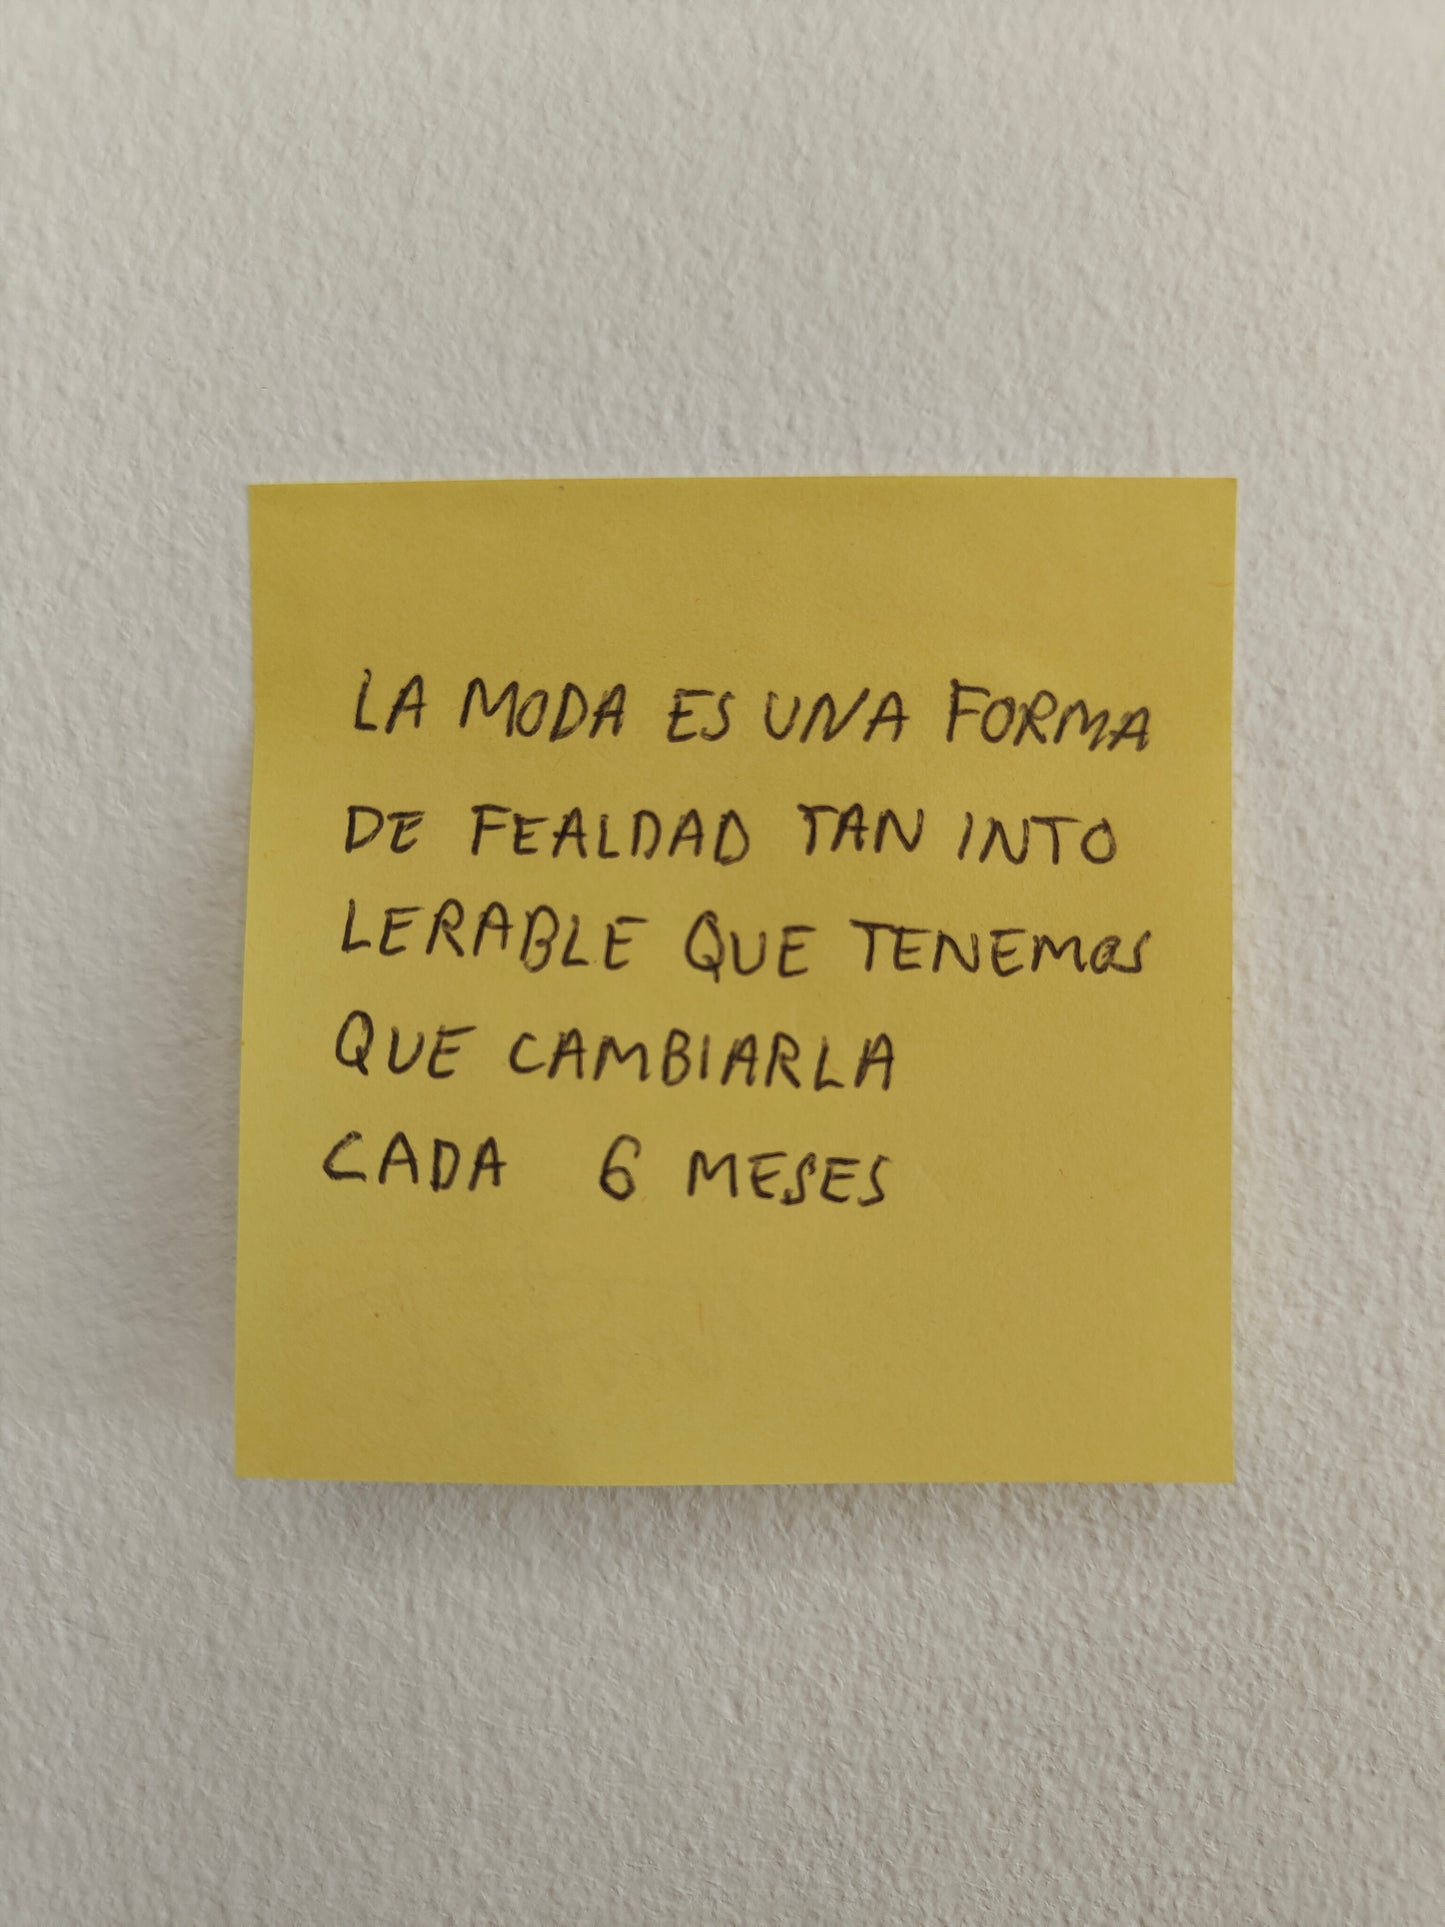 LA MODA ES UNA FORMA
DE FEALDAD TAN INTO
LERABLE QUE TENEMOS
QUE CAMBIARLA
CADA 6 MESES